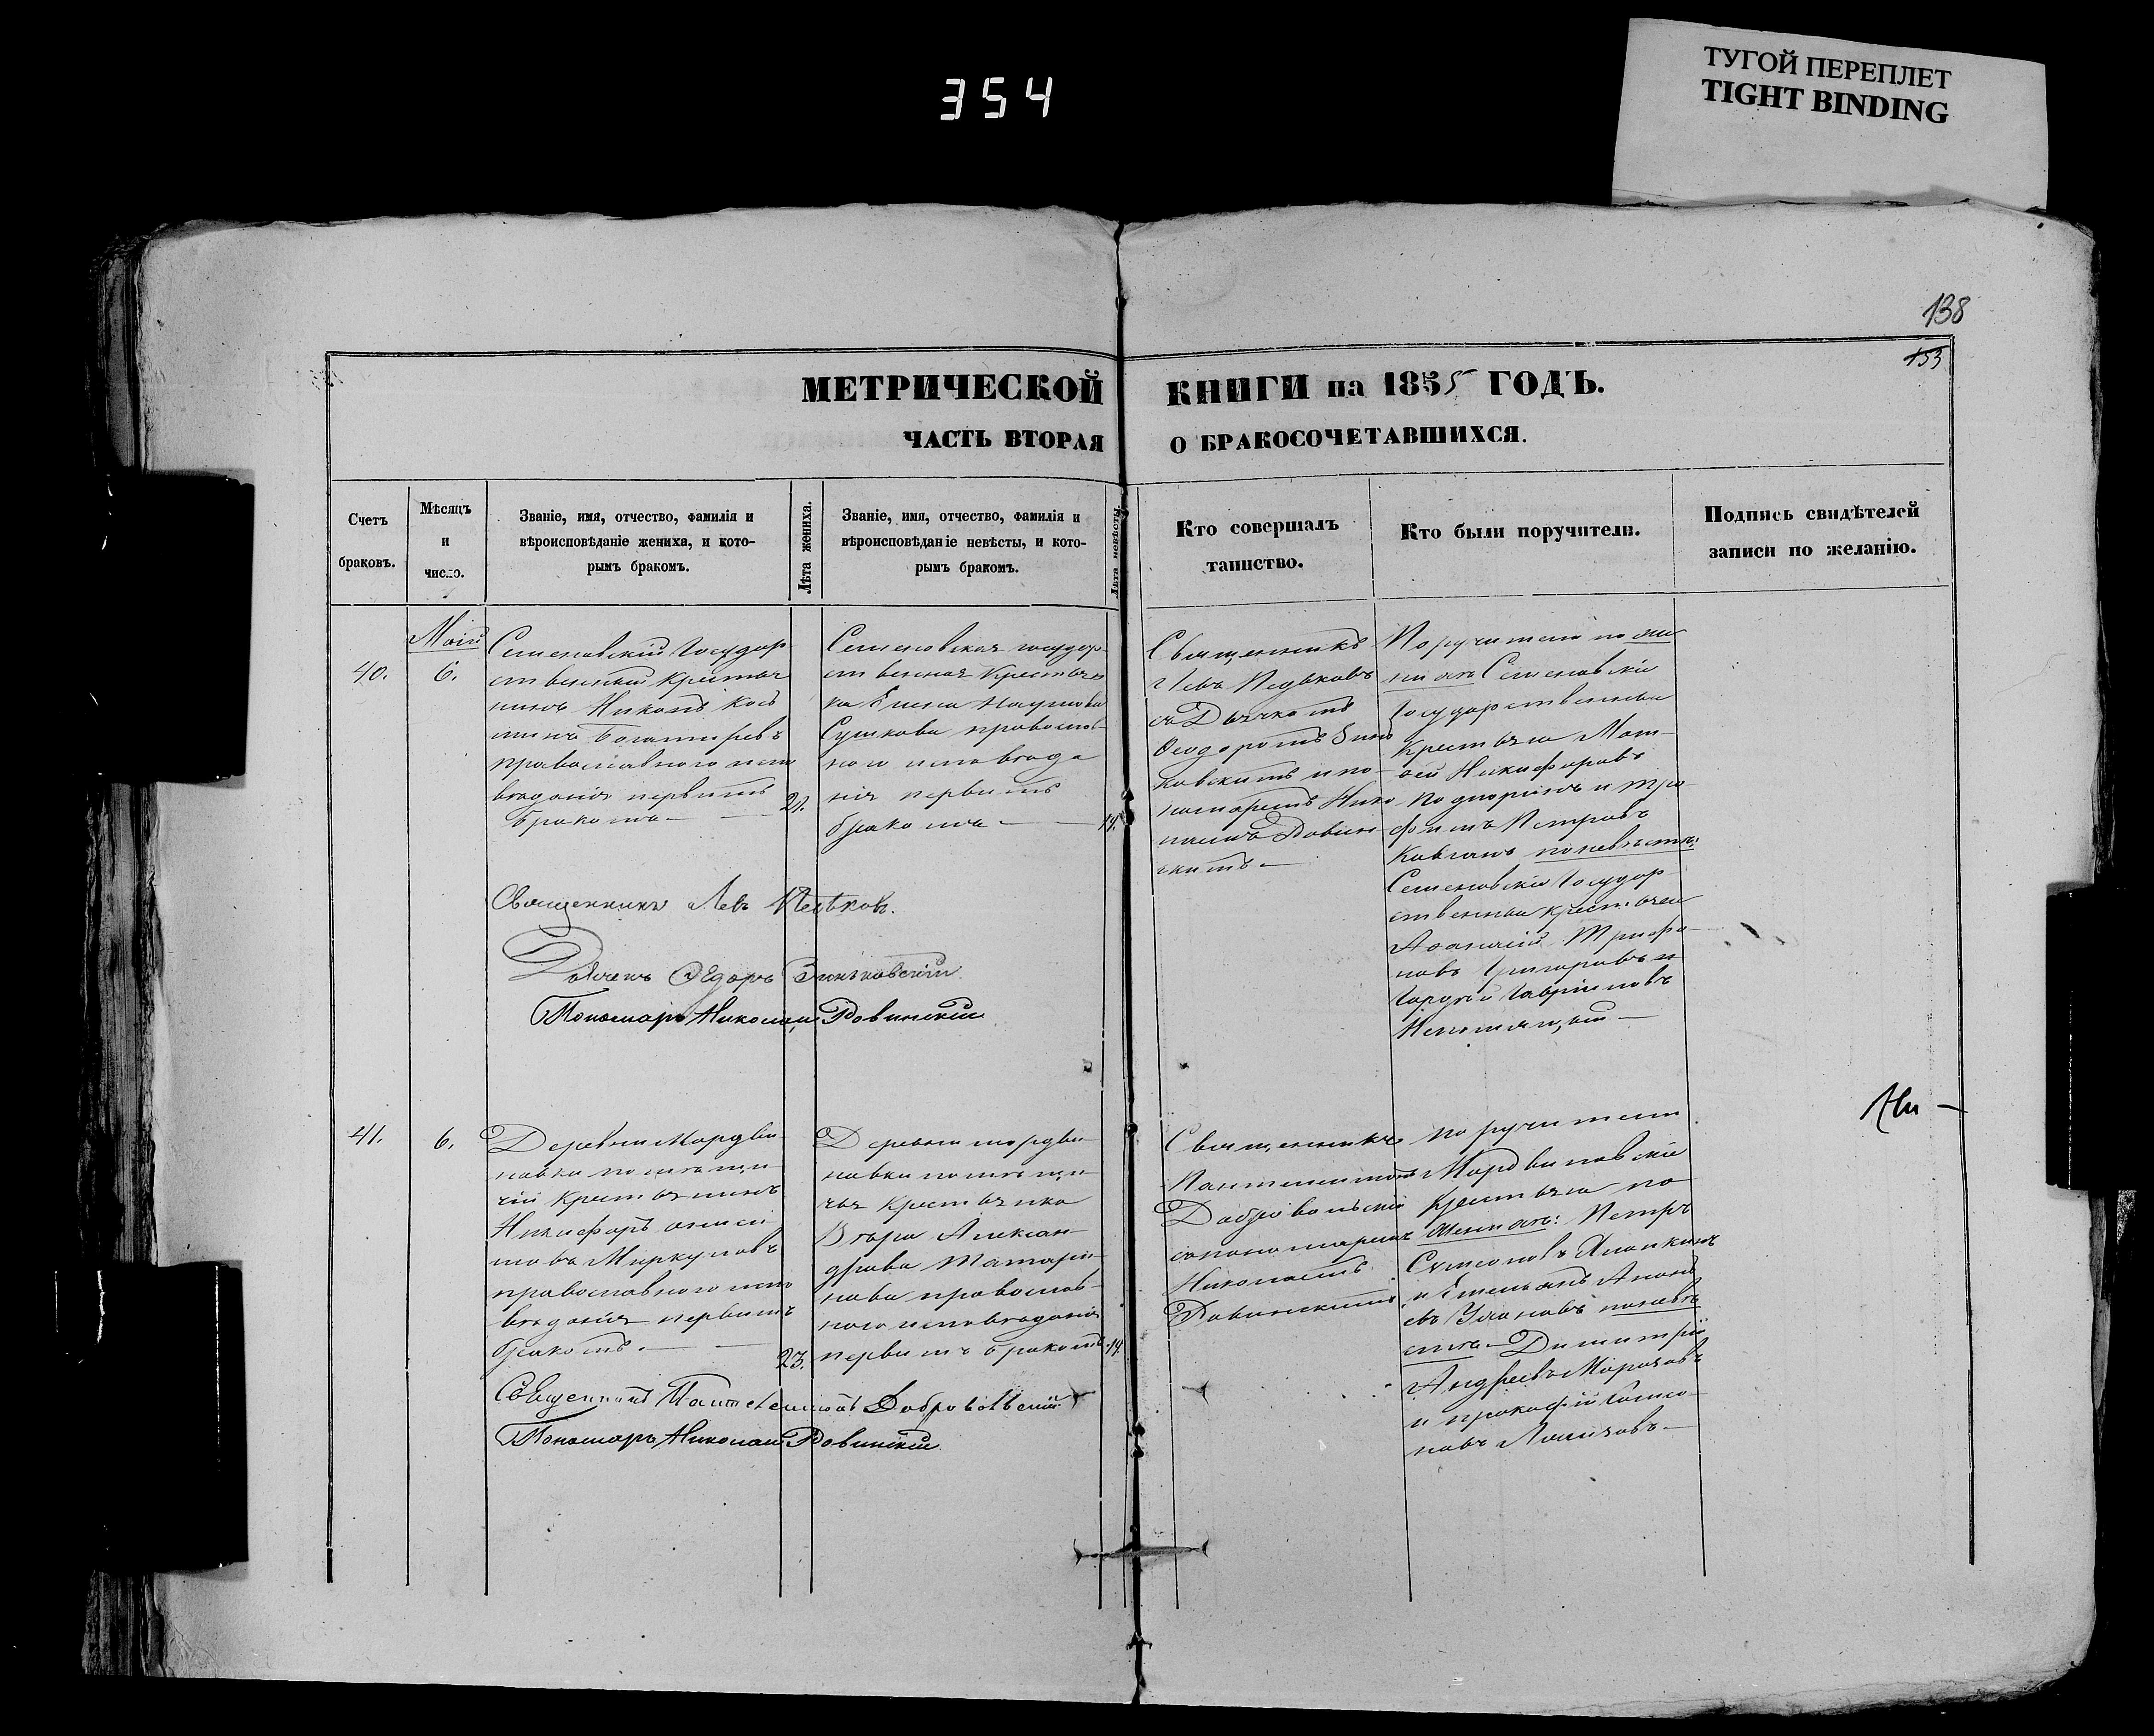 354
ТУГОЙ ПЕРЕПЛЕТ
TIGHT BINDING
138
153
МЕТРИЧЕСКОЙ КНИГИ на 1855 ГОДЪ.
ЧАСТЬ ВТОРАЯ О БРАКОСОЧЕТАВШИХСЯ.
Счетъ
браковъ.
Мѣсяцъ
и
число.
Званіе, имя, отчество, фамилія и
вѣроисповѣданіе жениха, и кото-
рымъ бракомъ.
Лѣта жениха.
Званіе, имя, отчество, фамилія и
вѣроисповѣданіе невѣсты, и кото-
рымъ бракомъ.
Лѣта невѣсты.
Кто совершалъ
таинство.
Кто были поручители.
Подпись свидѣтелей
записи по желанію.
40.
Маій
6.
Семеновскій Государ
ственный крестья
нинъ Никонъ Кось
минъ Богатиревъ
православного испо
вѣданія первымъ
бракомъ
21.
Семеновская государ
ственная крестьян
ка Елена Наумова
Сушкова православ
ного исповѣда
нія первымъ
бракомъ
19.
Священникъ
Левъ
съ Дьячкомъ
Феодоромъ Зинь
ковскимъ и по
номаремъ Нико
лаемъ Ровин
скимъ
Поручители по же
нихъ Семеновскіе
Государственные
Крестьяне Мат
фей Никифоровъ
и Тро
фимъ Петровъ
по невѣсты:
Семеновскіе Государ
ственные крестьяне
Афанасій Трифо
новъ Григоровъ и
Гордѣй Гавриловъ
Священникъ Левъ
Дьячекъ Ѳедоръ Зиньковскій
Пономарь Николай Ровинскій
41.
6.
Деревни Мордви
новки помѣщи
чій крестьянинъ
Никифоръ
Меркуловъ
православного испо
вѣданія первымъ
бракомъ
23.
Деревни Мордви
новки помѣщи
чья крестьянка
Вѣра Алексан
дрова Татари
нова православ
ного исповѣданія
первымъ бракомъ
19.
Священникъ
Пантелеимонъ
Добровольскій
съ пономаремъ
Николаемъ
Ровинскимъ
Поручители
Мордвиновскіе
крестьяне по
женихъ: Петръ
Симеоновъ
и Емельянъ
по невѣ
сты Димитрій
Андреевъ Морозовъ
и Прокофій Симо
новъ
Священникъ Пантелеимонъ Добровольскій
Пономарь Николай Ровинскій